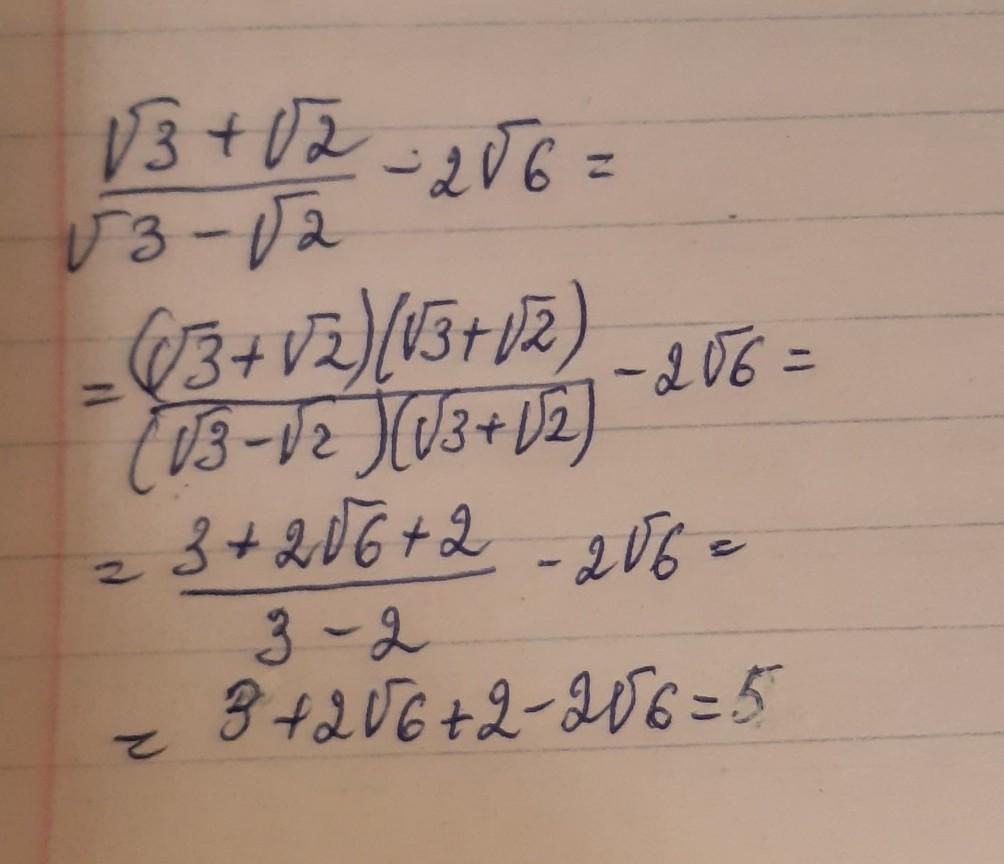 (√3 + √2)/(√3 − √2) − 2√6 =
= ((√3 + √2)(√3 + √2))/((√3 − √2)(√3 + √2)) − 2√6 =
= (3 + 2√6 + 2)/(3 − 2) − 2√6 =
= 3 + 2√6 + 2 − 2√6 = 5